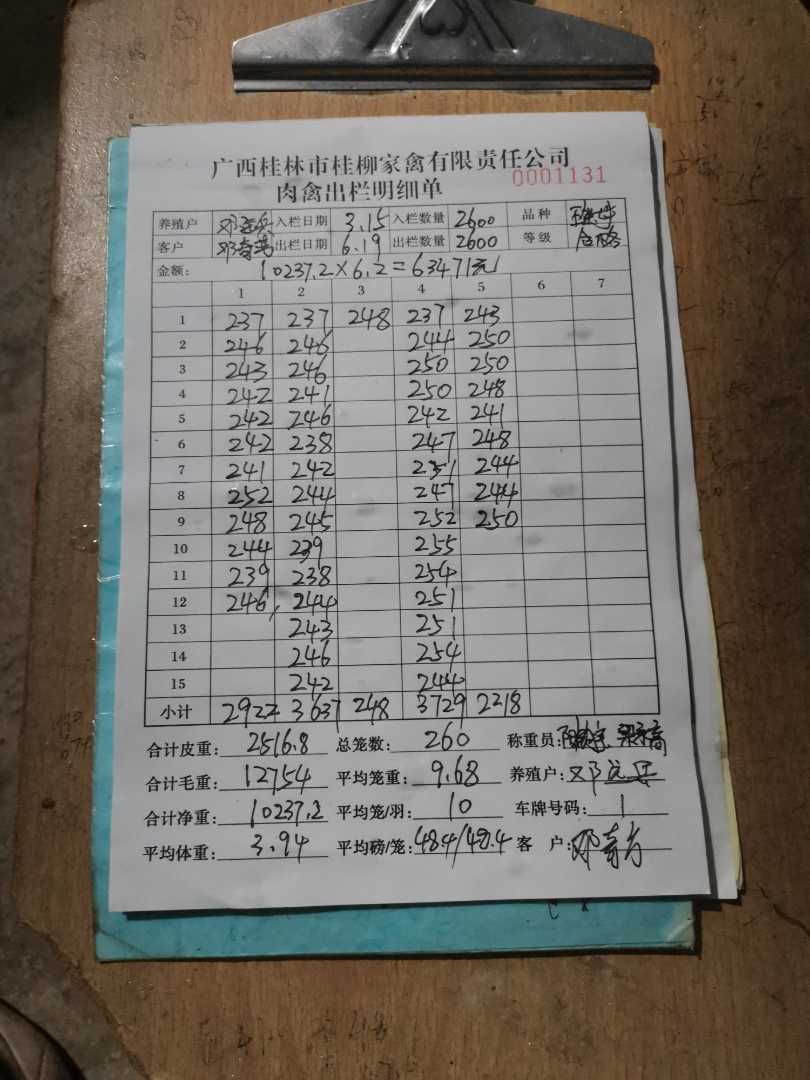 广西桂林市桂柳家禽有限责任公司
肉禽出栏明细单 0001131
养殖户 入栏日期 3.15 入栏数量 2600 品种
客户 出栏日期 6.19 出栏数量 2600 等级 合格
金额: 10237.2×6.2=63471元
1 2 3 4 5 6 7
1 237 237 248 237 243
2 246 246 244 250
3 243 246 250 250
4 242 241 250 248
5 242 246 242 241
6 242 238 247 248
7 241 242 251 244
8 252 244 247 244
9 248 245 252 250
10 244 239 255
11 239 238 254
12 246 244 251
13 243 251
14 246 254
15 242 244
小计 2922 3637 248 3729 2218
合计皮重: 2516.8 总笼数: 260 称重员:
合计毛重: 12754 平均笼重: 9.68 养殖户:
合计净重: 10237.2 平均笼/羽: 10 车牌号码: 1
平均体重: 3.94 平均磅/笼: 48.4/48.4 客 户: